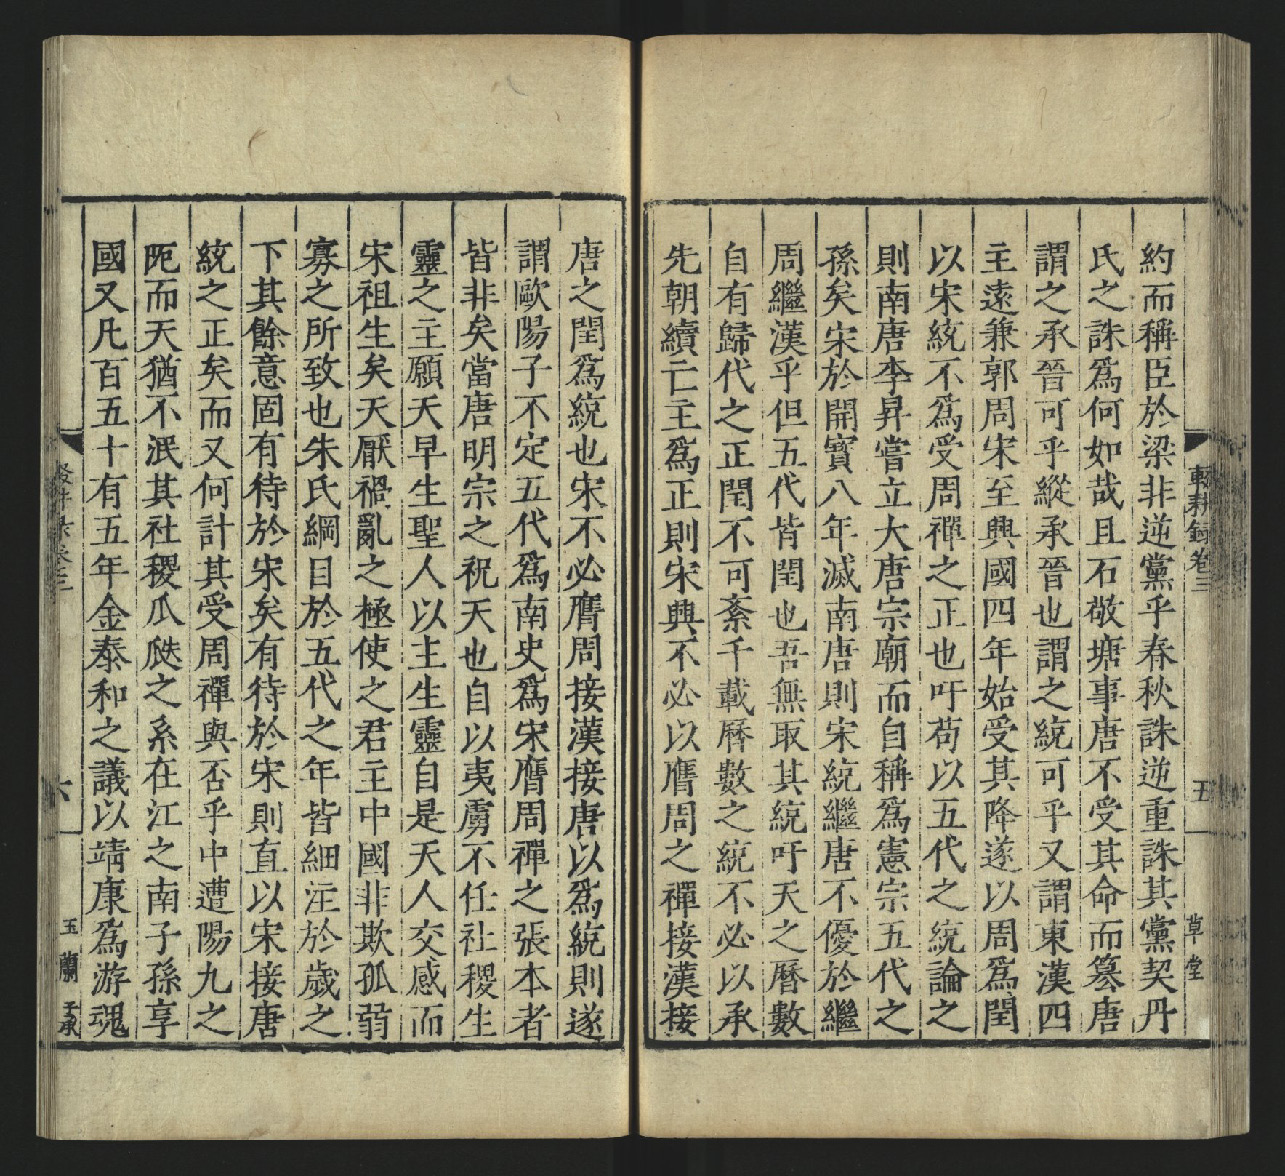 約而稱臣於梁非逆黨乎春秋誅逆重誅其黨契丹
氏之誅爲何如哉且石敬塘事唐不受其命而簒唐
謂之承晉可乎縱承晉也謂之統可乎又謂東漢四
主遠兼郭周宋至興國四年始受其降遂以周爲閏
以宋統不爲受周禪之正也吁苟以五代之統論之
則南唐李昇嘗立大唐宗廟而自稱爲憲宗五代之
孫矣宋於開寶八年滅南唐則宋統繼唐不優於繼
周繼漢乎但五代皆閏也吾無取其統吁天之曆數
自有歸代之正閏不可紊千載曆數之統不必以承
先朝續亡主爲正則宋興不必以膺周之禪接漢接
輟耕錄卷三
五
草堂
唐之閏爲統也宋不必膺周接漢接唐以爲統則遂
謂歐陽子不定五代爲南史爲宋膺周禪之張本者
皆非矣當唐明宗之祝天也自以夷虜不任社稷生
靈之主願天早生聖人以主生靈自是天人交感而
宋祖生矣天厭禍亂之極使之君主中國非欺孤弱
寡之所致也朱氏綱目於五代之年皆細注於歲之
下其餘意固有待於宋矣有待於宋則直以宋接唐
統之正矣而又何計其受周禪與否乎中遭陽九之
阨而天猶不泯其社稷瓜瓞之系在江之南子孫享
國又凡百五十有五年金泰和之議以靖康爲游魂
六
玉蘭